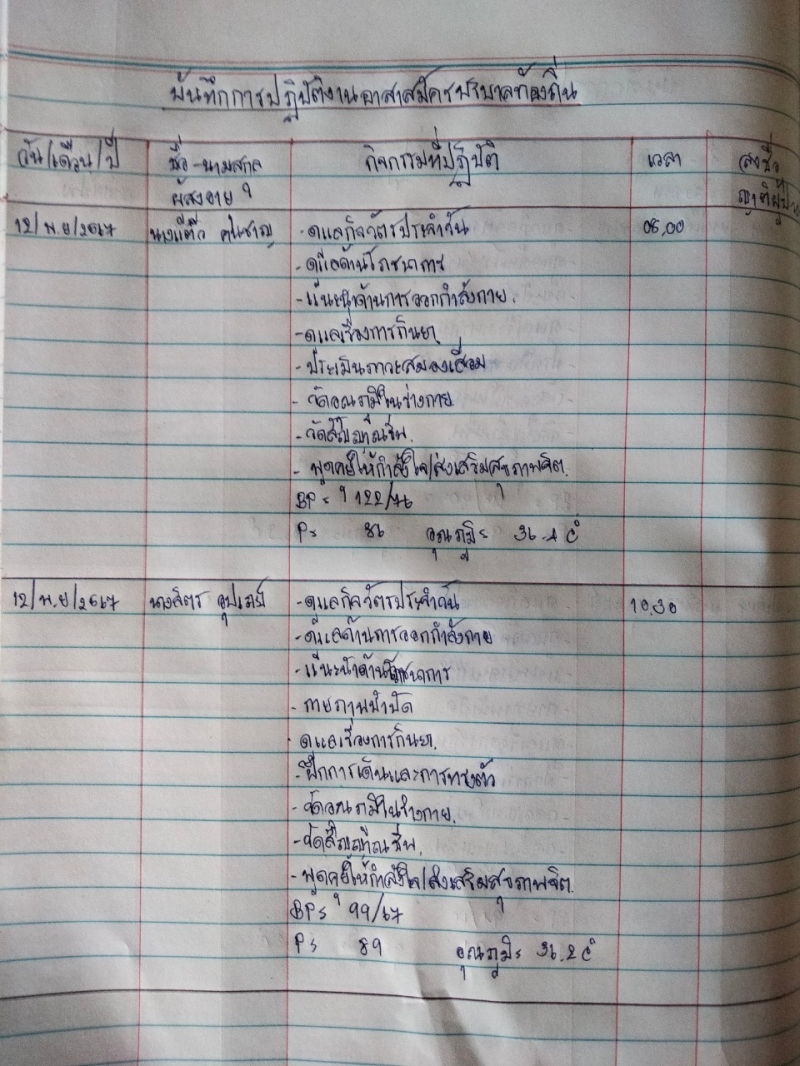 บันทึกการปฏิบัติงานอาสาสมัครบริบาลท้องถิ่น
วัน/เดือน/ปี ชื่อ-นามสกุล กิจกรรมที่ปฏิบัติ เวลา ลงชื่อ
ผู้สูงอายุ ญาติผู้ป่วย
12/พ.ย/2567 - ดูแลกิจวัตรประจำวัน 08.00
- ดูแลด้านโภชนาการ
- แนะนำด้านการออกกำลังกาย.
- ดูแลเรื่องการกินยา
- ประเมินภาวะสมองเสื่อม
- วัดอุณภูมิในร่างกาย
- วัดสัญญาณชีพ.
- พูดคุยให้กำลังใจ/ส่งเสริมสุขภาพจิต.
BP = 122/76
P = 86 อุณภูมิ = 36.4 c°
12/พ.ย/2567 - ดูแลกิจวัตรประจำวัน 10.30
- ดูแลด้านการออกกำลังกาย
- แนะนำด้านโภชนาการ
- กายภาพบำบัด
- ดูแลเรื่องการกินยา.
- ฝึกการเดินและการทรงตัว
- วัดอุณภูมิในร่างกาย.
- วัดสัญญาณชีพ.
- พูดคุยให้กำลังใจ/ส่งเสริมสุขภาพจิต.
BP = 99/67
P = 89 อุณภูมิ = 36.2 c°